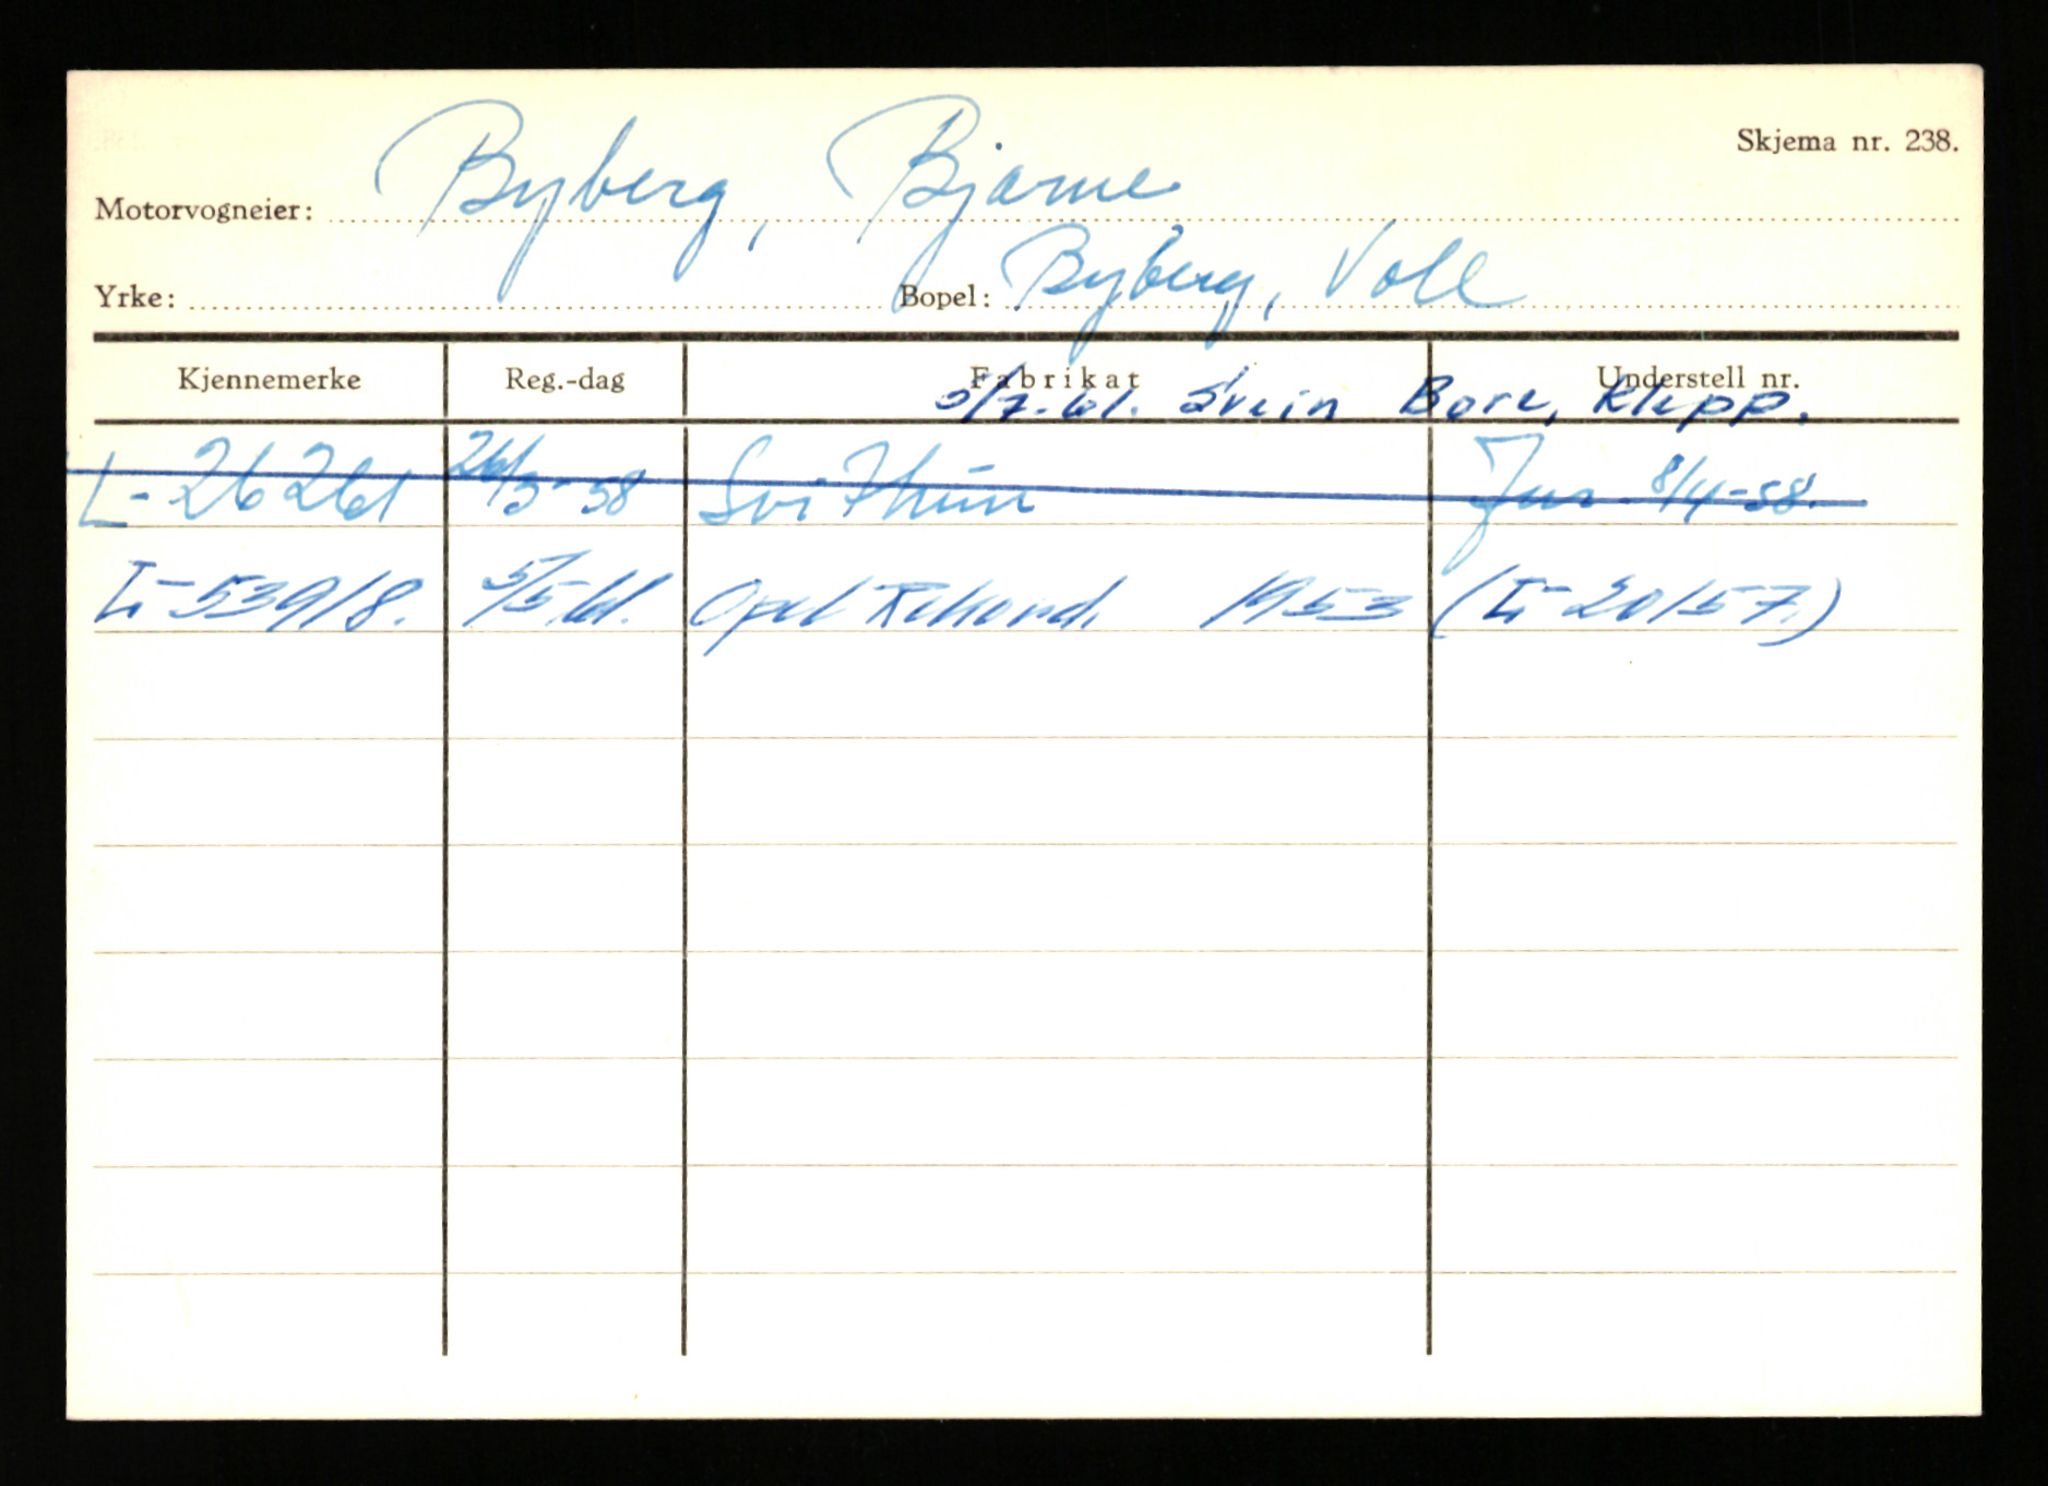 Skjema nr. 238.
Motorvogneier: Byberg, Bjarne
Yrke: Bopel: Byberg, Voll
Kjennemerke Reg.-dag Fabrikat Understell nr.
5/7-61. Svein Bore, Klepp.
L-26261 26/3-58 Svithun 8/4-58.
L-53918. 5/5-61. Opel Rekord. 1953 (L-20157.)